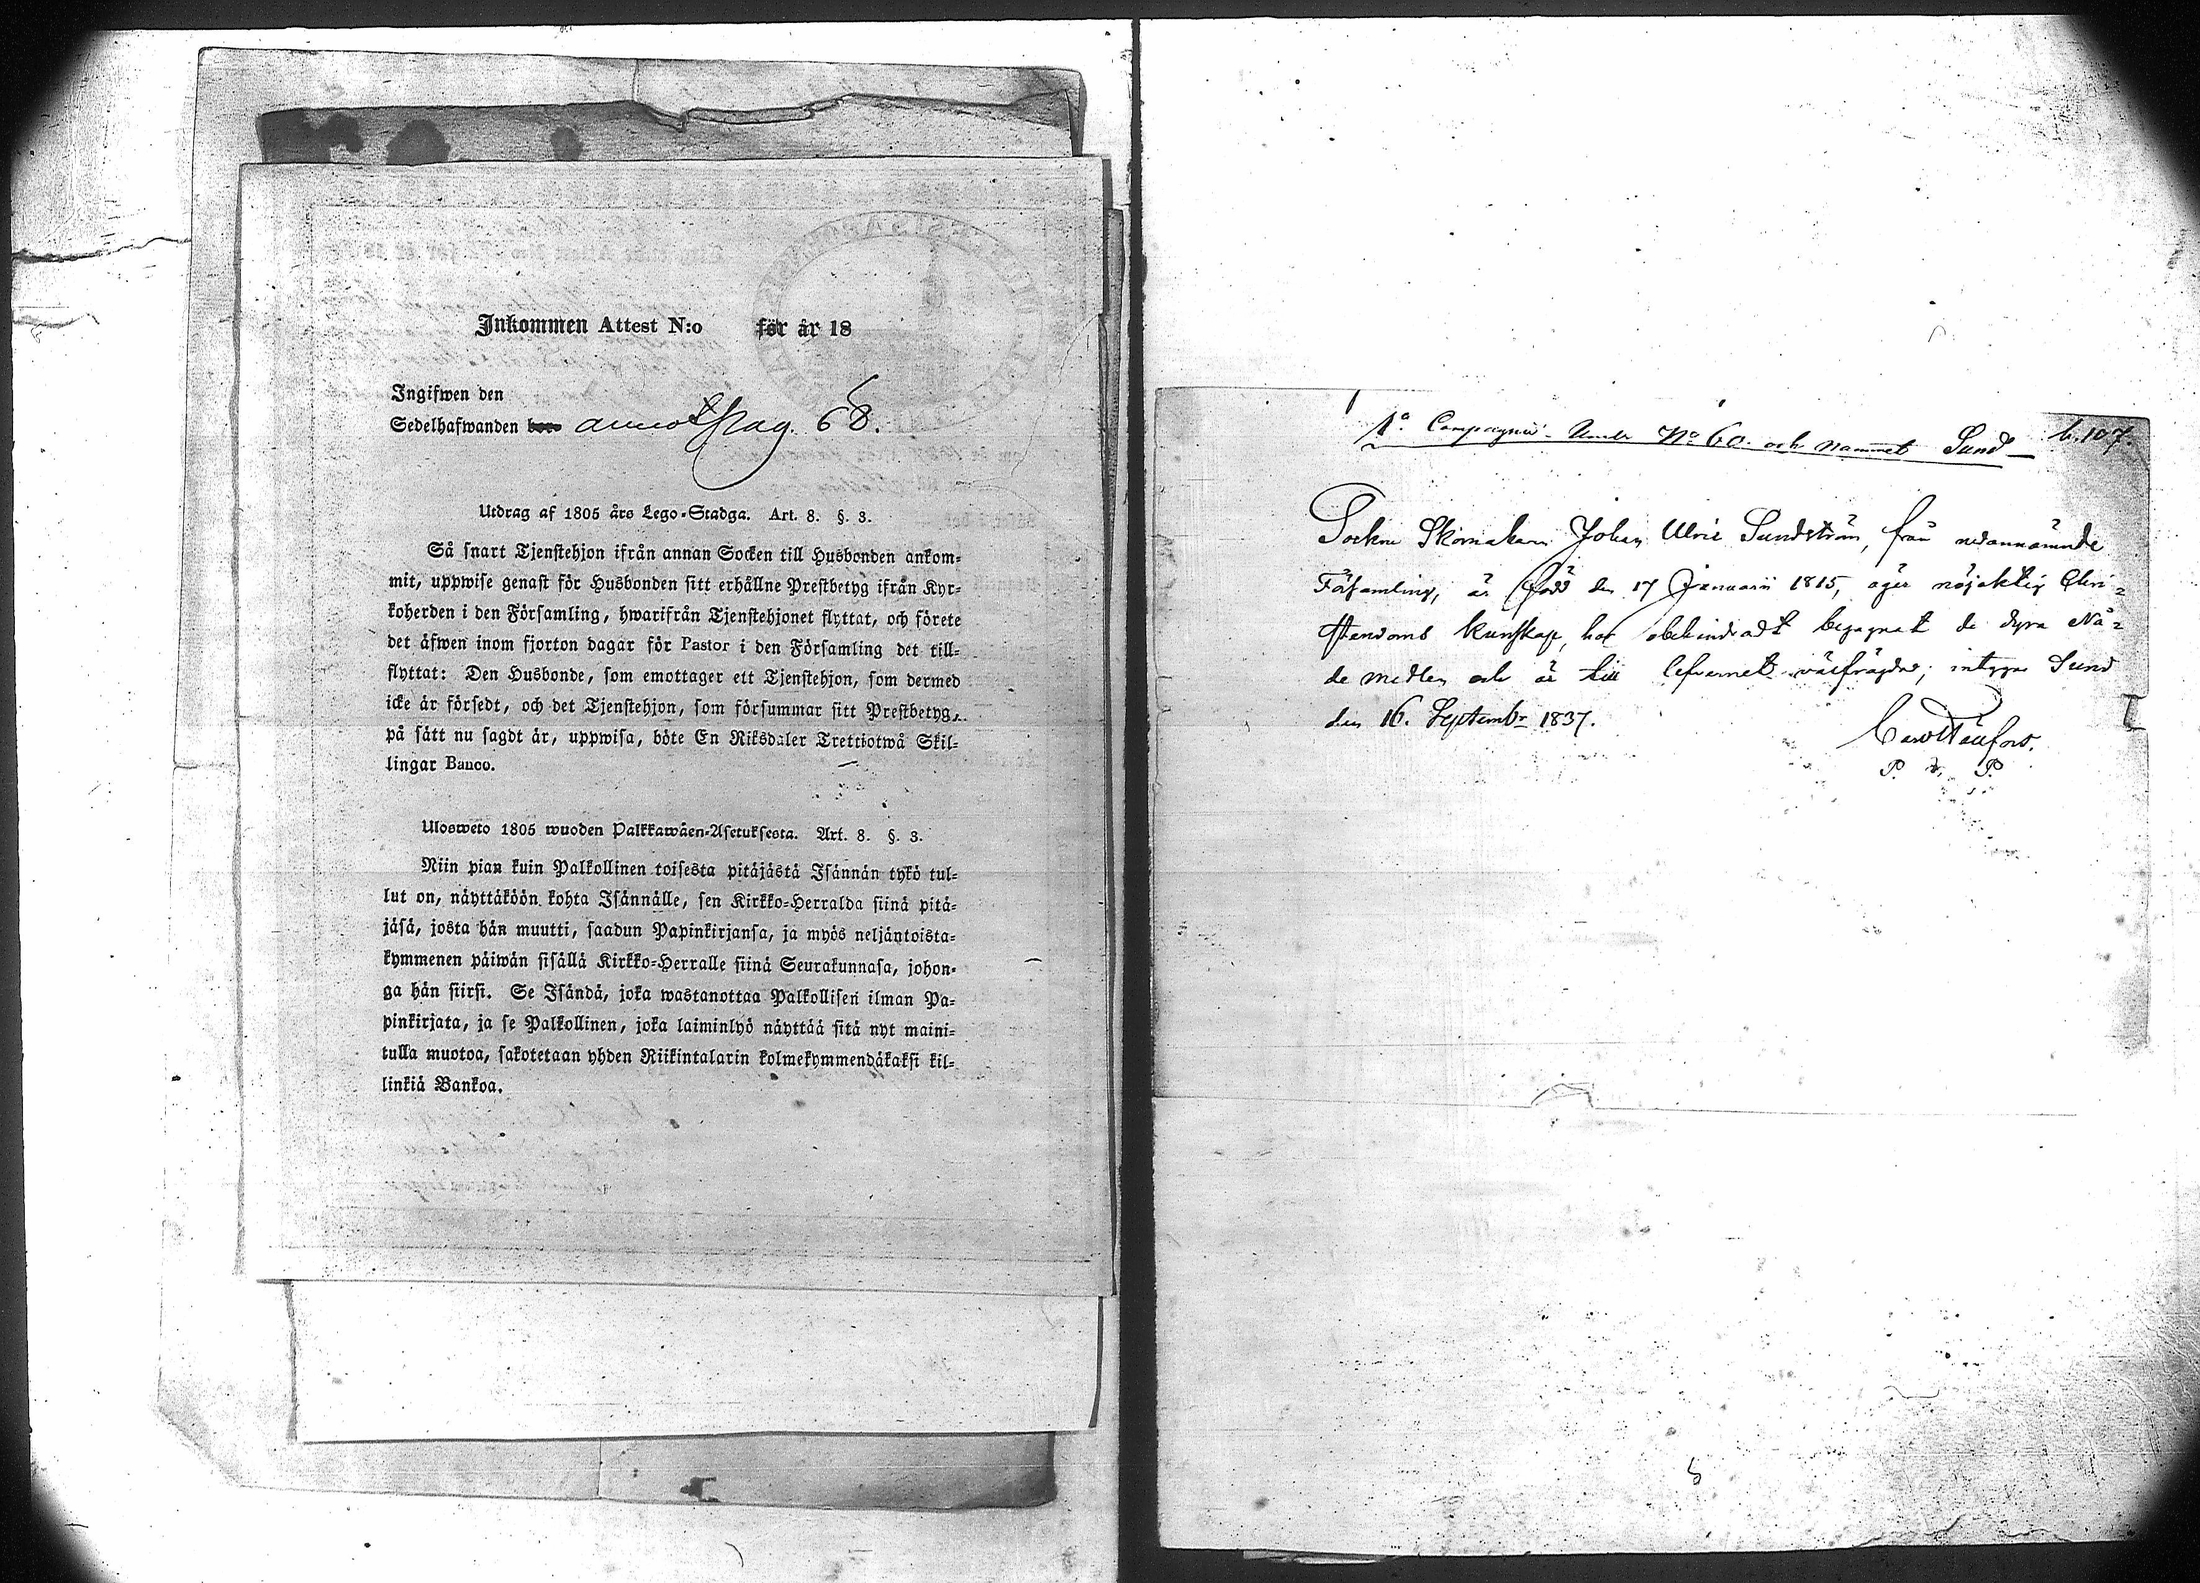 Inkommen Attest N:o för år 18
Ingifwen den
Sedelhafwanden bor annot. Pag. 68.
Utdrag af 1805 års Lego-Stadga. Art. 8. §. 3.
Så snart Tjenstehjon ifrån annan Socken till Husbonden ankom-
mit, uppwise genast för Husbonden sitt erhållne Prestbetyg ifrån Kyr-
koherden i den Församling, hwarifrån Tjenstehjonet flyttat, och förete
det äfwen inom fjorton dagar för Pastor i den Församling det till-
flyttat: Den Husbonde, som emottager ett Tjenstehjon, som dermed
icke är försedt, och det Tjenstehjon, som försummar sitt Prestbetyg,
på sätt nu sagdt är, uppwisa, böte En Riksdaler Trettiotwå Skil-
lingar Banco.
Uloswetо 1805 wuoden Palkkawäen-Asetuksesta. Art. 8. §. 3.
Niin pian kuin Palkollinen toisesta pitäjästä Isännän tykö tul-
lut on, näyttäköön kohta Isännälle, sen Kirkko-Herralda siinä pitä-
jäsä, josta hän muutti, saadun Papinkirjansa, ja myös neljäntoista-
kymmenen päiwän sisällä Kirkko-Herralle siinä Seurakunnasa, johon-
ga hän siirsi. Se Isändä, joka wastanottaa Palkollisen ilman Pa-
pinkirjata, ja se Palkollinen, joka laiminlyö näyttää sitä nyt maini-
tulla muotoa, sakotetaan yhden Riikintalarin kolmekymmendäkaksi kil-
linkiä Bankoa.
1a Compagnie. Under No 60. och namnet Sund b. 107.
Sockne Skomakaren Johan Ulric Sundström, från nedannämnde
Församling, är född den 17 Januarii 1815, äger nöjaktig Chri-
stendoms kunskap, har obehindradt begagnat de dyra Nå-
de medlen och är till lefvernet välfräjdad; intygar Sund
den 16. Septembr 1837.
P. t. P.